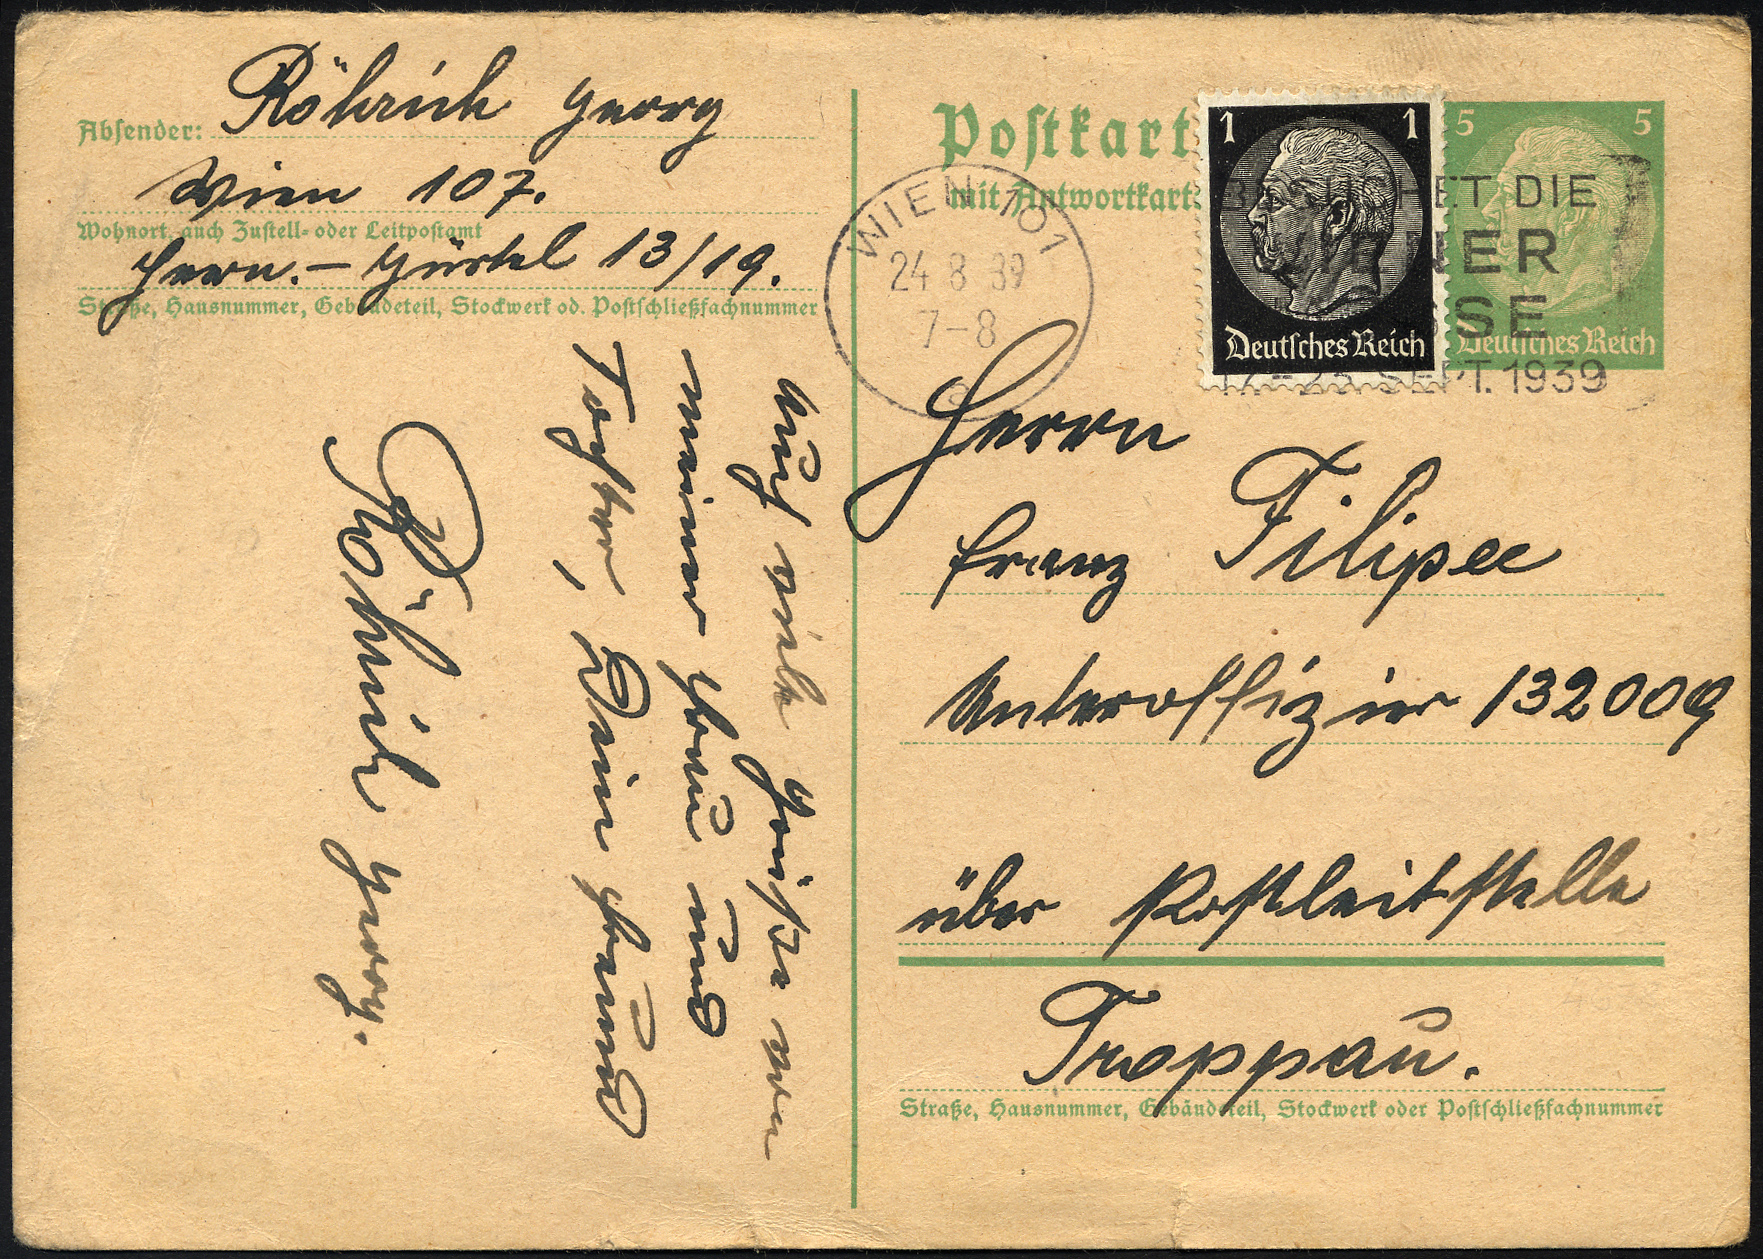 Absender: Röhrich Georg
Wien 107.
Wohnort, auch Zustell- oder Leitpostamt
Hern.- Gürtel 13/19.
Straße, Hausnummer, Gebäudeteil, Stockwerk od. Postschließfachnummer
Auch viele Grüße von
meiner Frau und
Tochter, Dein Freund
Röhrich Georg.
Postkart
mit Antwortkart
WIEN 101
24 8 39
7-8
1 1
Deutsches Reich
5 5
Deutsches Reich
BESUCHET DIE
NER
SSE
17.-23. SEPT. 1939
Herrn
Franz Filipec
Unteroffizier 132009
über Postleitstelle
Troppau.
Straße, Hausnummer, Gebäudeteil, Stockwerk oder Postschließfachnummer